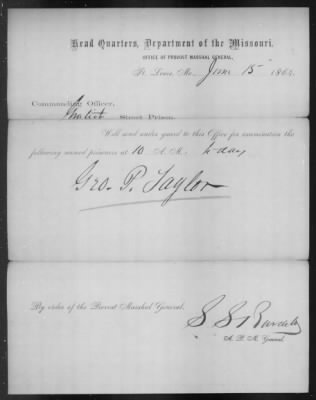 Head Quarters, Department of the Missouri.
OFFICE OF PROVOST MARSHAL GENERAL,
St. Louis, Mo., June 15 1864.
Commanding Officer,
Gratiot Street Prison.
Will send under guard to this Office for examination the
following named prisoners at 10 A. M. to-day
Geo. P. Taylor
By order of the Provost Marshal General.
S. S.
A. P. M. General.